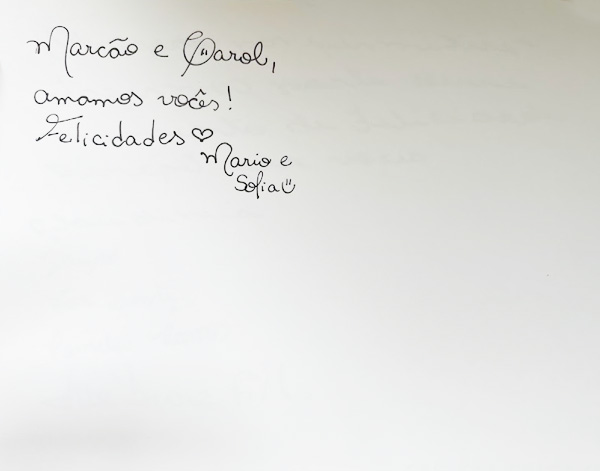 Marcão e Carol,
amamos vocês!
Felicidades ♡
Mario e
Sofia